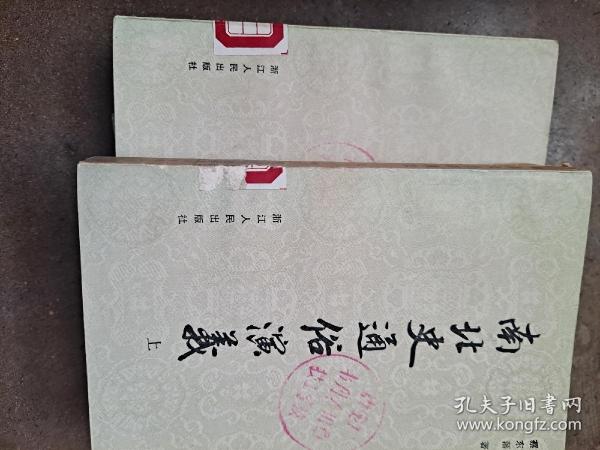 浙江人民出版社
浙江人民出版社
南北史通俗演義
上
蔡东藩 著
孔夫子旧书网
www.kongfz.com